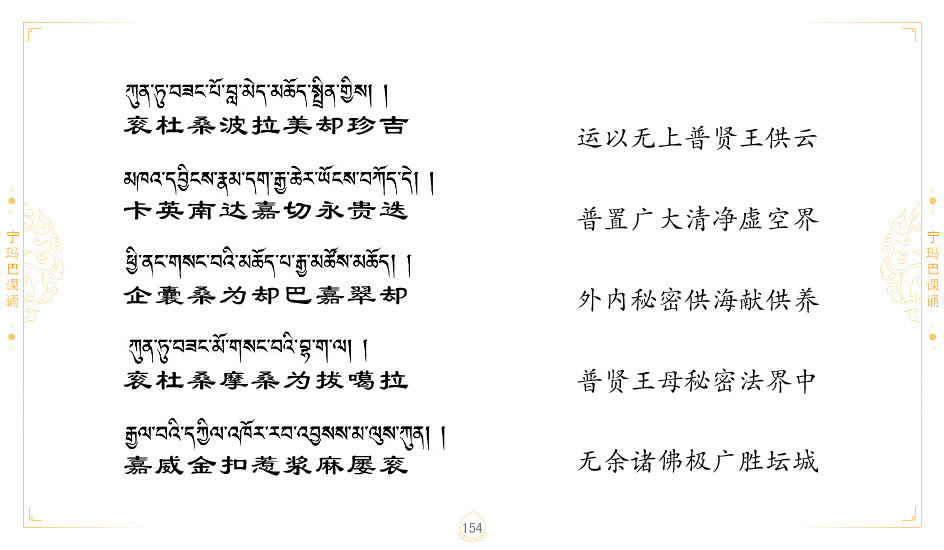 ཀུན་ཏུ་བཟང་པོ་བླ་མེད་མཆོད་སྤྲིན་གྱིས། །
衮杜桑波拉美却珍吉
运以无上普贤王供云
མཁའ་དབྱིངས་རྣམ་དག་རྒྱ་ཆེར་ཡོངས་བཀོད་དེ། །
卡英南达嘉切永贵迭
普置广大清净虚空界
ཕྱི་ནང་གསང་བའི་མཆོད་པ་རྒྱ་མཚོས་མཆོད། །
企囊桑为却巴嘉翠却
外内秘密供海献供养
ཀུན་ཏུ་བཟང་མོ་གསང་བའི་བྷ་ག་ལ། །
衮杜桑摩桑为拔噶拉
普贤王母秘密法界中
རྒྱལ་བའི་དཀྱིལ་འཁོར་རབ་འབྱམས་མ་ལུས་ཀུན། །
嘉威金扣惹浆麻屡衮
无余诸佛极广胜坛城
宁玛巴课诵
宁玛巴课诵
154